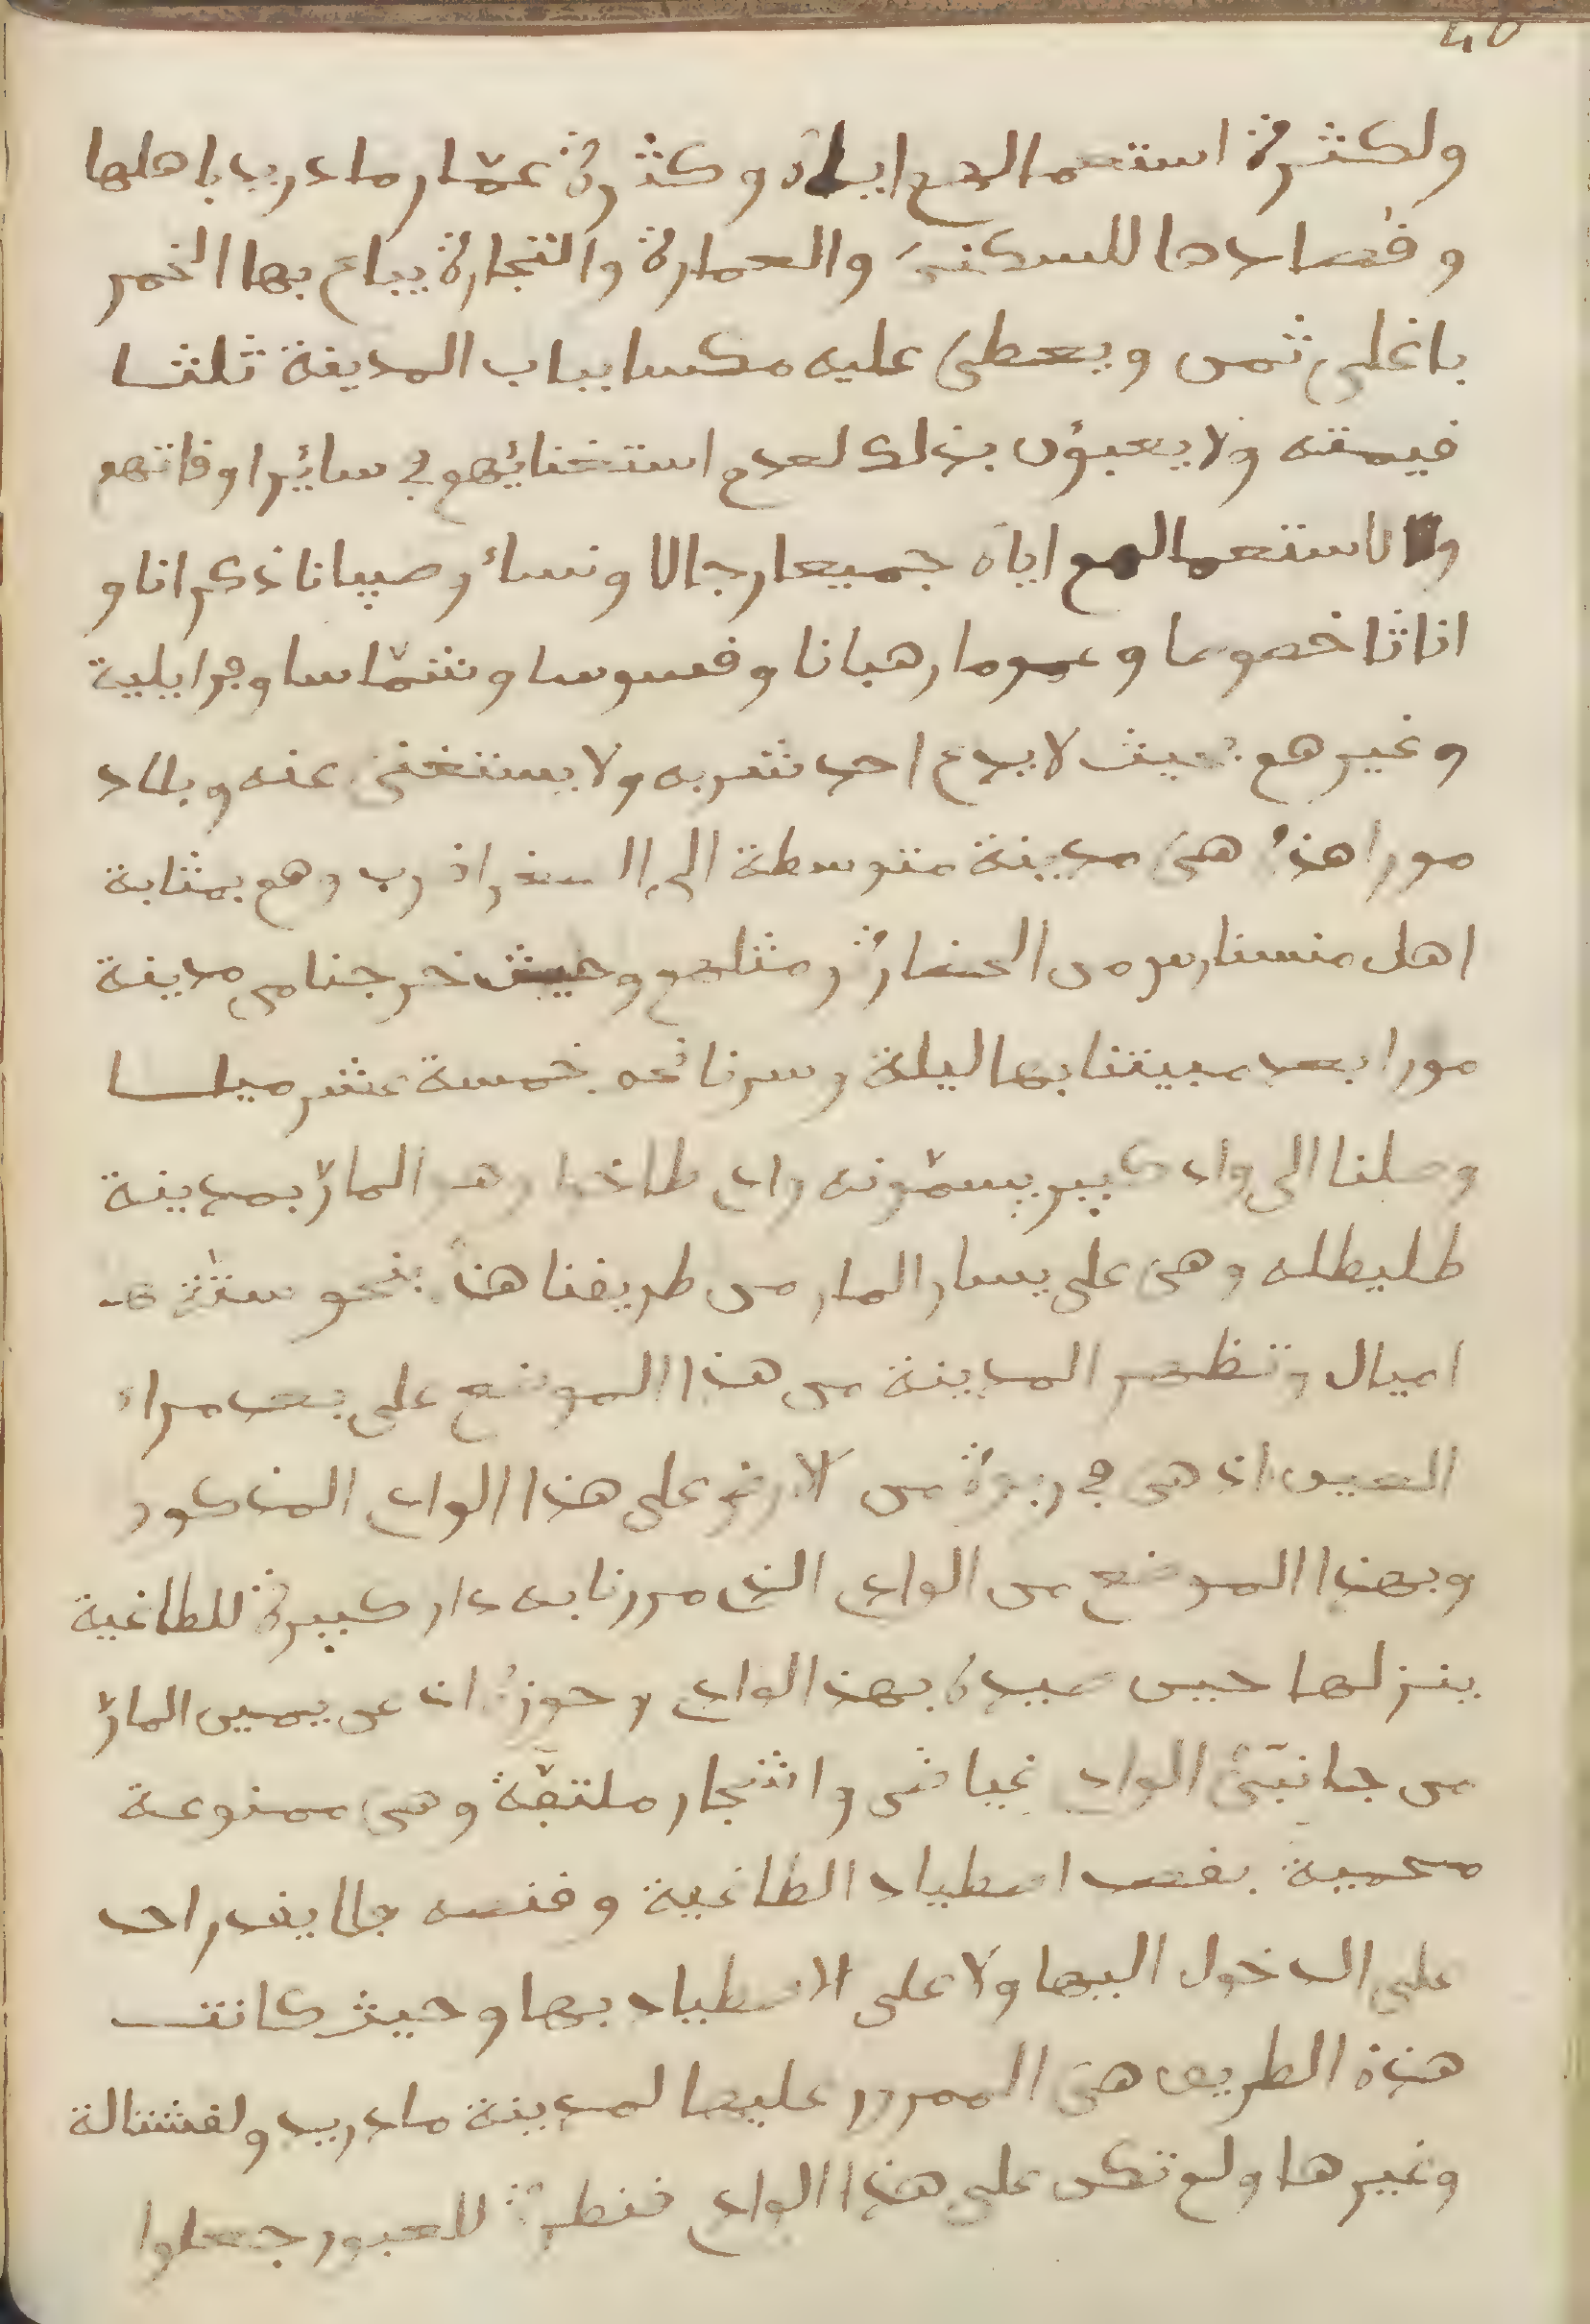 40
ولكثرة استعمالهم اياه وكثرة عمّار مادريد باهلها
وقصادها للسكنى والعمارة والتجارة يباع بها الخمر
باغلى ثمن ويعطى عليه مكسا بباب المدينة ثلثا
قيمته ولا يعبؤن بذلك لعدم استغنائهم في سائر اوقاتهم
ولاستعمالهم اياه جميعا رجالا ونساء وصبيانا ذكرانا و
اناثا خصوصا وعموما رهبانا وقسوسا وشمّاسا وفرايلية
وغيرهم بحيث لا يدع احد شربه ولا يستغنى عنه وبلاد
مورا هذه هي مدينة متوسطة الى الصغر اقرب وهم بمثابة
اهل منسنارس من الحضارة ومثلهم وحيث خرجنا من مدينة
مورا بعد مبيتنا بها ليلة وسرنا نحو خمسة عشر ميلا
وصلنا الى واد كبير يسمّونه واد طاخوا وهو المارّ بمدينة
طليطله وهي على يسار المار من طريقنا هذا بنحو ستة
اميال وتظهر المدينة من هذا الموضع على بعد مراء
العين اذ هي في ربوة من الارض على هذا الواد المذكور
وبهذا الموضع من الواد الذي مررنا به دار كبيرة للطاغية
ينزلها حين صيده بهذا الواد وحوزه اذ عن يمين المارّ
من جانبَي الواد غياض واشجار ملتفّة وهي ممنوعة
محمية بقصد اصطياد الطاغية وقنصه فلا يقدر احد
على الدخول اليها ولا على الاصطياد بها وحيث كانت
هذه الطريق هي الممرور عليها لمدينة مادريد ولقشتالة
وغيرها ولم تكن على هذا الواد قنطرة للعبور جعلوا